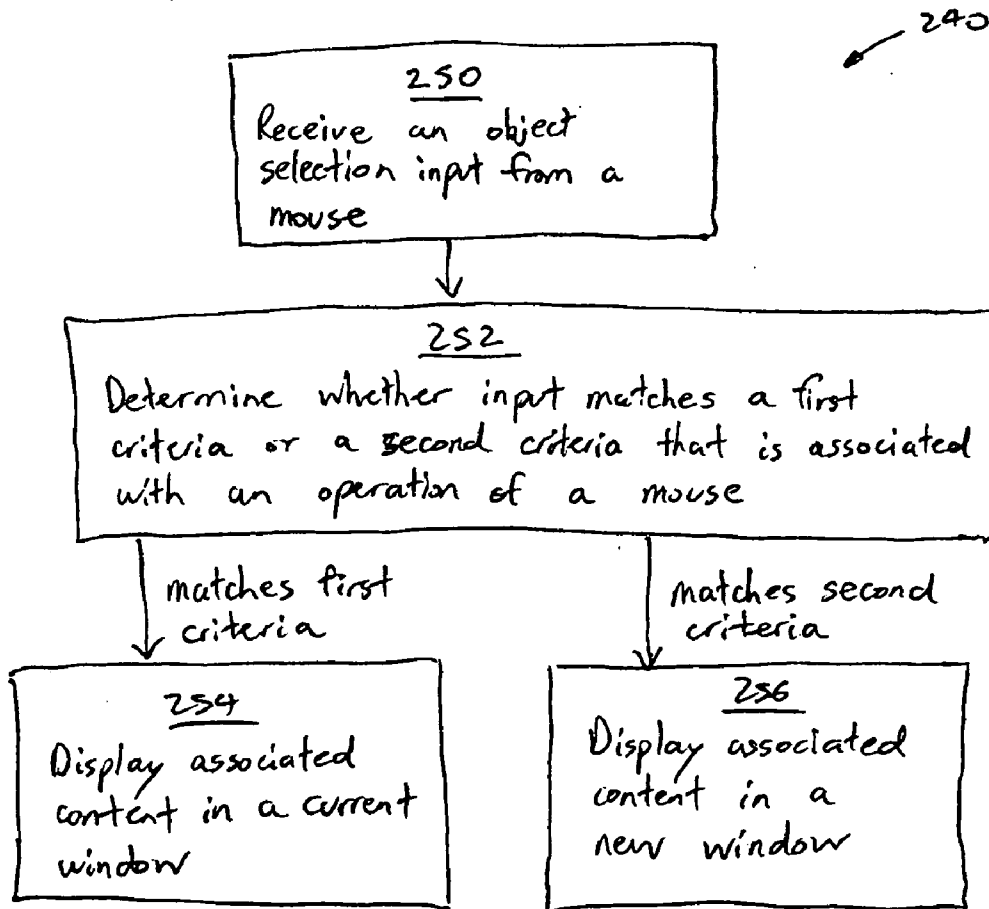 240
250
Receive an object
selection input from a
mouse
252
Determine whether input matches a first
criteria or a second criteria that is associated
with an operation of a mouse
matches first
criteria
matches second
criteria
254
Display associated
content in a current
window
256
Display associated
content in a
new window